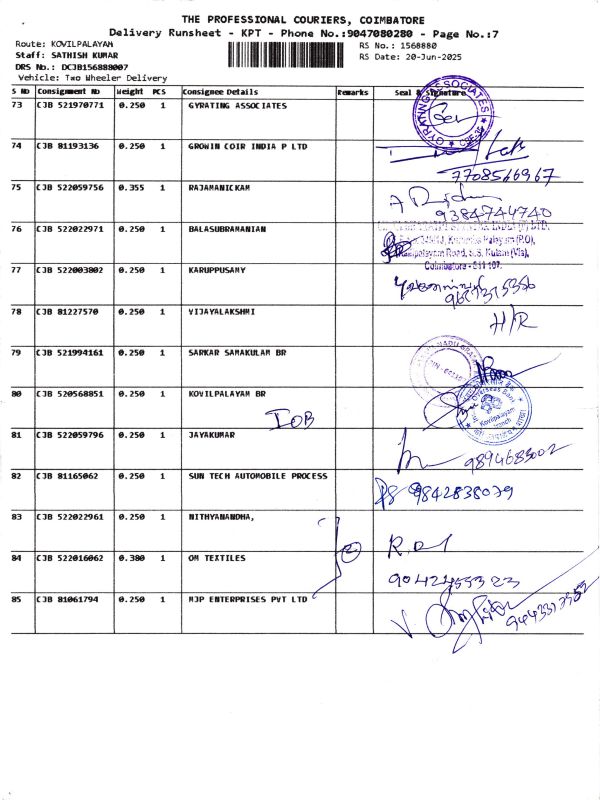 THE PROFESSIONAL COURIERS, COIMBATORE
Delivery Runsheet - KPT - Phone No.:9047080280 - Page No.:7
Route: KOVILPALAYAM
RS No.: 1568880
Staff: SATHISH KUMAR
RS Date: 20-Jun-2025
DRS No.: DCJB156888007
Vehicle: Two Wheeler Delivery
S No Consignment No Weight PCS Consignee Details Remarks Seal & Signature
73 CJB 521970771 0.250 1 GYRATING ASSOCIATES
74 CJB 81193136 0.250 1 GROWIN COIR INDIA P LTD
7708566967
75 CJB 522059756 0.355 1 RAJAMANICKAM
9384744740
76 CJB 522022971 0.250 1 BALASUBRAMANIAN
Coimbatore - 641 107.
77 CJB 522003802 0.250 1 KARUPPUSAMY
78 CJB 81227570 0.250 1 VIJAYALAKSHMI
H/R
79 CJB 521994161 0.250 1 SARKAR SAMAKULAM BR
80 CJB 520568851 0.250 1 KOVILPALAYAM BR
IOB
Kovilpalayam
81 CJB 522059796 0.250 1 JAYAKUMAR
9894683002
82 CJB 81165062 0.250 1 SUN TECH AUTOMOBILE PROCESS
9842838079
83 CJB 522022961 0.250 1 NITHYANANDHA,
2
84 CJB 522016062 0.380 1 OM TEXTILES
9042455323
85 CJB 81061794 0.250 1 MJP ENTERPRISES PVT LTD